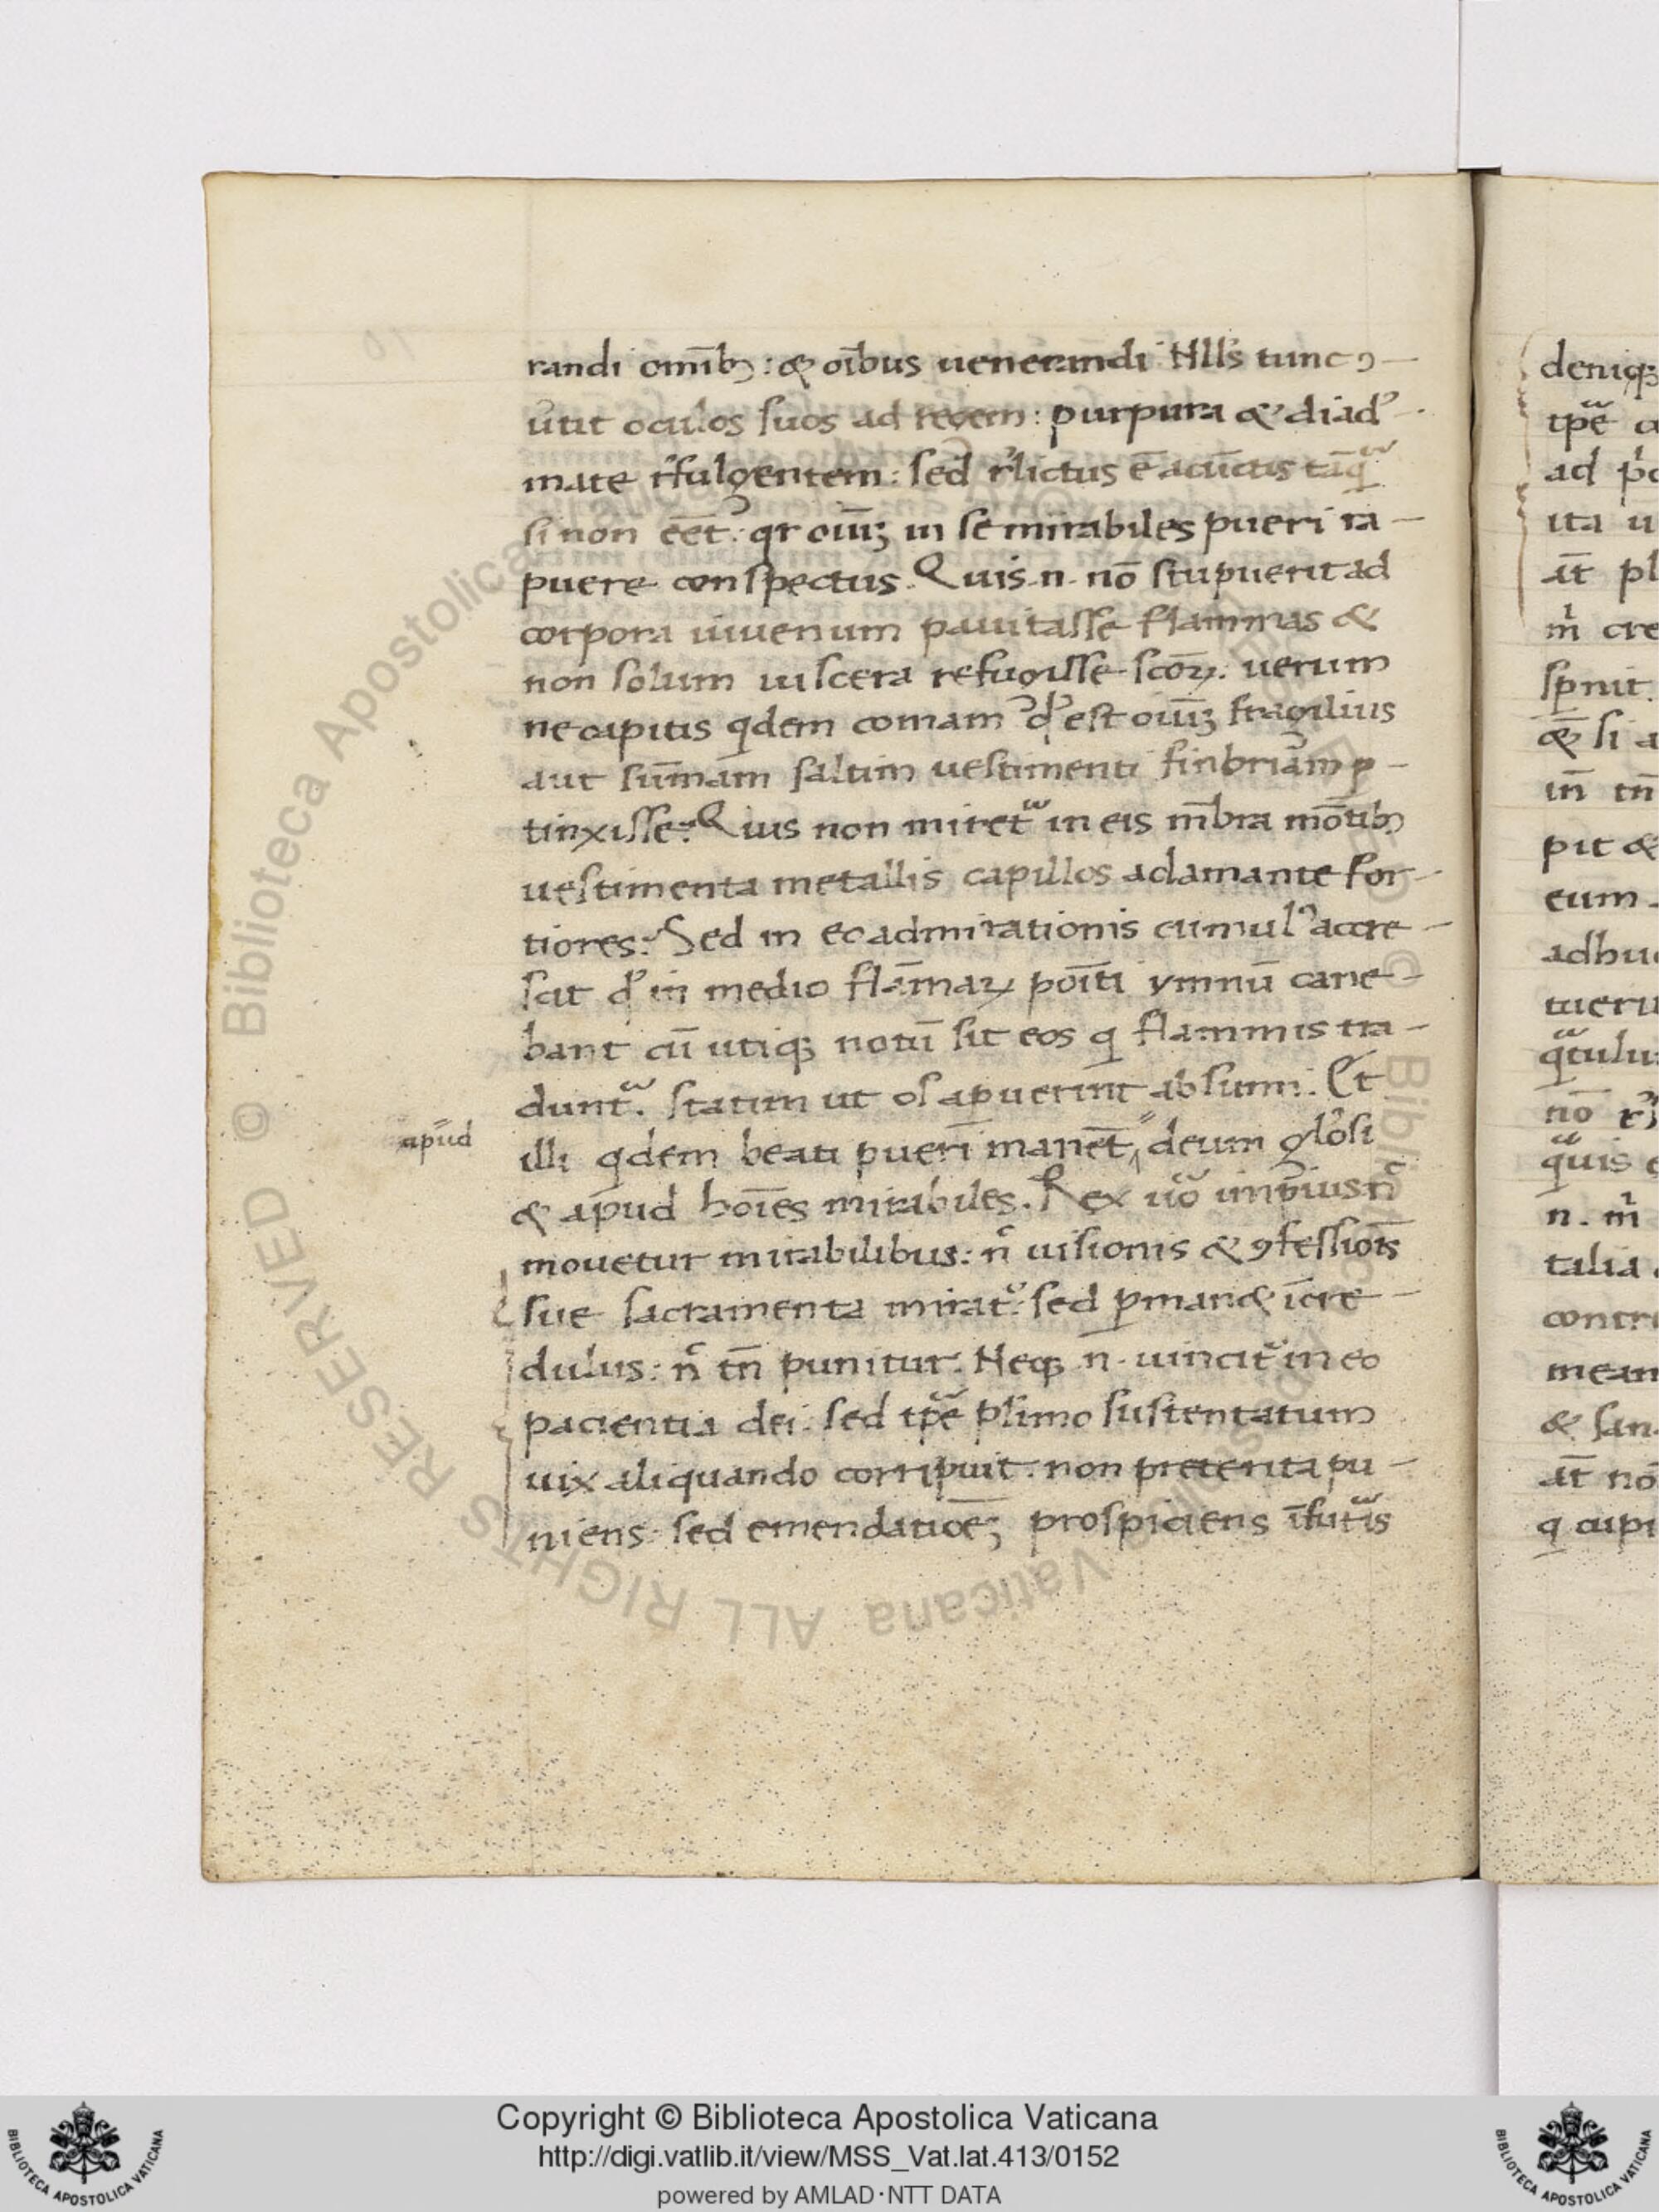 randi omībꝫ : & oībus uenerandi Nllꝰs tunc ꝯ-
ūtit oculos suos ad regem : purpura & diadꝰ-
mate rꝰfulgentem : sed rꝰlictus ē acūctis tāqͣ
si non eēt : qr oiūꝫ in se mirabiles pueri ra-
puere conspectus. Quis .n. nō stupuerit ad
corpora iuuenum pauitasse flammas &
non solum uiscera refugisse scōꝝ. uerum
ne capitis qdem comam qd' est oiūꝫ fragilius
aut sūmam saltim uestimenti finbriam p-
tinxisse? Quis non miretͣ in eis mēbra mōtibꝫ
uestimenta metallis capillos adamante for-
tiores? Sed in eo admirationis cumulꝰ accre-
scit qd' in medio flāmaꝝ poīti ymnū cane-
bant cū utiqꝫ notū sit eos q flammis tra-
duntͣ. statim ut os apuerint absumi. Et
illi qdem beati pueri manēt deum glꝰosi
apud
& apud hoīes mirabiles. Rex uͦo impius n̄
mouetur mirabilibus : n̄ uisionis & ꝯfessiōis
sue sacramenta miratͣ : sed ꝑman& īcre-
dulus : n̄ tn̄ punitur. Neqꝫ .n. uincitͣ in eo
pacientia dei. sed tꝑe plimo sustentatum
uix aliquando corripuit. non preterita pu-
niens. sed emendatiōēꝫ prospiciens īfutͣis
deniqꝫ
tꝑe
ad
ita u
āt pl
cre
spnit
& si a
in̄ tn̄
pit &
eum
adhu
tueru
qͣtulu
nō
qͣuis
n.
talia
contr
mean
& san
āt nō
q cupi
Copyright © Biblioteca Apostolica Vaticana
http://digi.vatlib.it/view/MSS_Vat.lat.413/0152
powered by AMLAD·NTT DATA
BIBLIOTECA APOSTOLICA VATICANA
BIBLIOTECA APOSTOLICA VATICANA
© Biblioteca Apostolica Vaticana ALL RIGHTS RESERVED